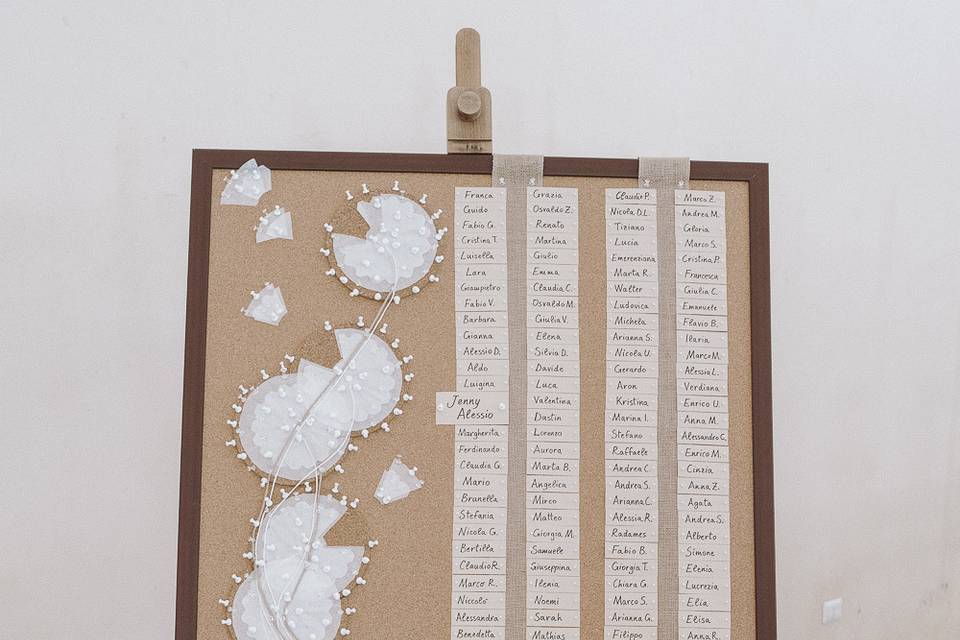 Franca
Guido
Fabio G.
Cristina T.
Luisella
Lara
Giampietro
Fabio V.
Barbara
Gianna
Alessio D.
Aldo
Luigina
Jenny
Alessio
Margherita
Ferdinando
Claudia G.
Mario
Brunella
Stefania
Nicola G.
Bertilla
Claudio R.
Marco R.
Niccolò
Alessandra
Benedetta
Grazia
Osvaldo Z.
Renato
Martina
Giulio
Emma
Claudia C.
Osvaldo M.
Giulia V.
Elena
Silvia D.
Davide
Luca
Valentina
Dastin
Lorenzo
Aurora
Marta B.
Angelica
Mirco
Matteo
Giorgia M.
Samuele
Giuseppina
Ilenia
Noemi
Sarah
Mathias
Claudio P.
Nicola D.L.
Tiziano
Lucia
Emerenziana
Marta R.
Walter
Ludovica
Michela
Arianna S.
Nicola U.
Gerardo
Aron
Kristina
Marina I.
Stefano
Raffaele
Andrea C.
Andrea S.
Arianna C.
Alessia R.
Radames
Fabio B.
Giorgia T.
Chiara G.
Marco S.
Arianna G.
Filippo
Marco Z.
Andrea M.
Gloria
Marco S.
Cristina P.
Francesca
Giulia C.
Emanuele
Flavio B.
Ilaria
Marco M.
Alessia L.
Verdiana
Enrico U.
Anna M.
Alessandro C.
Enrico M.
Cinzia
Anna Z.
Agata
Andrea S.
Alberto
Simone
Elenia
Lucrezia
Elia
Elisa
Anna R.